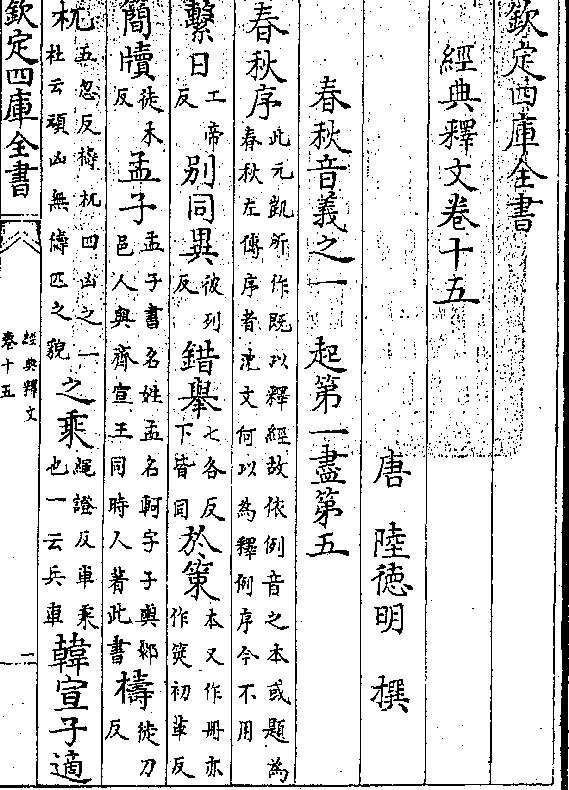 欽定四庫全書
經典釋文卷十五
唐 陸德明 撰
春秋音義之一 起第一盡第五
春秋序 此元凱所作既以釋經故依例音之本或題為春秋左傳序者沈文何以為釋例序今不用
繫日 工帝反 別同異 彼列反 錯舉 七各反下皆同 於策 本又作冊亦作筴初革反
簡牘 徒木反 孟子 孟子書名姓孟名軻字子輿鄒邑人與齊宣王同時人著此書 檮 徒刀反
杌 五忽反檮杌四凶之一杜云頑凶無儔匹之貌 之乘 繩證反車乘也一云兵車 韓宣子適
欽定四庫全書
經典釋文
卷十五